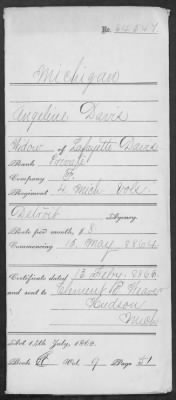 No. 64547
Michigan
Angeline Davis
Widow of Lafayette Davis
Rank Private
Company F
Regiment 4 Mich Vols
Detroit Agency.
Rate per month, $8
Commencing 15, May 1864
Certificate dated 13 Feby. 1866
and sent to Clement B. Weaver
Hudson
Mich
Act 14th July, 1862.
Book A Vol. 9 Page 51